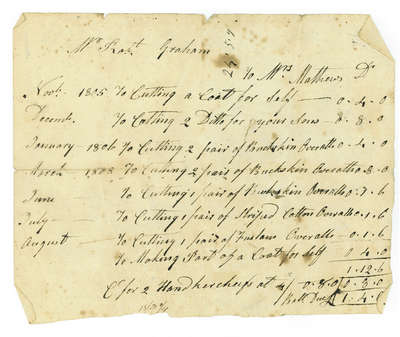 Mr Robt. Graham
To Mrs Mathews Dr
Novbr. 1805 To Cutting a Coat for Self — 0.4.0
Decembr. To Cutting 2 Ditto for your Sons — 0.8.0
January 1806 To Cutting 2 pair of Buckskin Overalls — 0.4.0
March To Cutting 2 pair of Buckskin Overalls 0.3.0
June — To Cutting 1 pair of Buckskin Overalls 0.1.6
July — To Cutting 1 pair of Striped Cotton Overalls 0.1.6
August — To Cutting 1 pair of Overalls — 0.1.6
To Making Part of a Coat for Self 0.4.0
1.12.6
Cr for 2 Handkercheifs at 4/ — 0.8.0